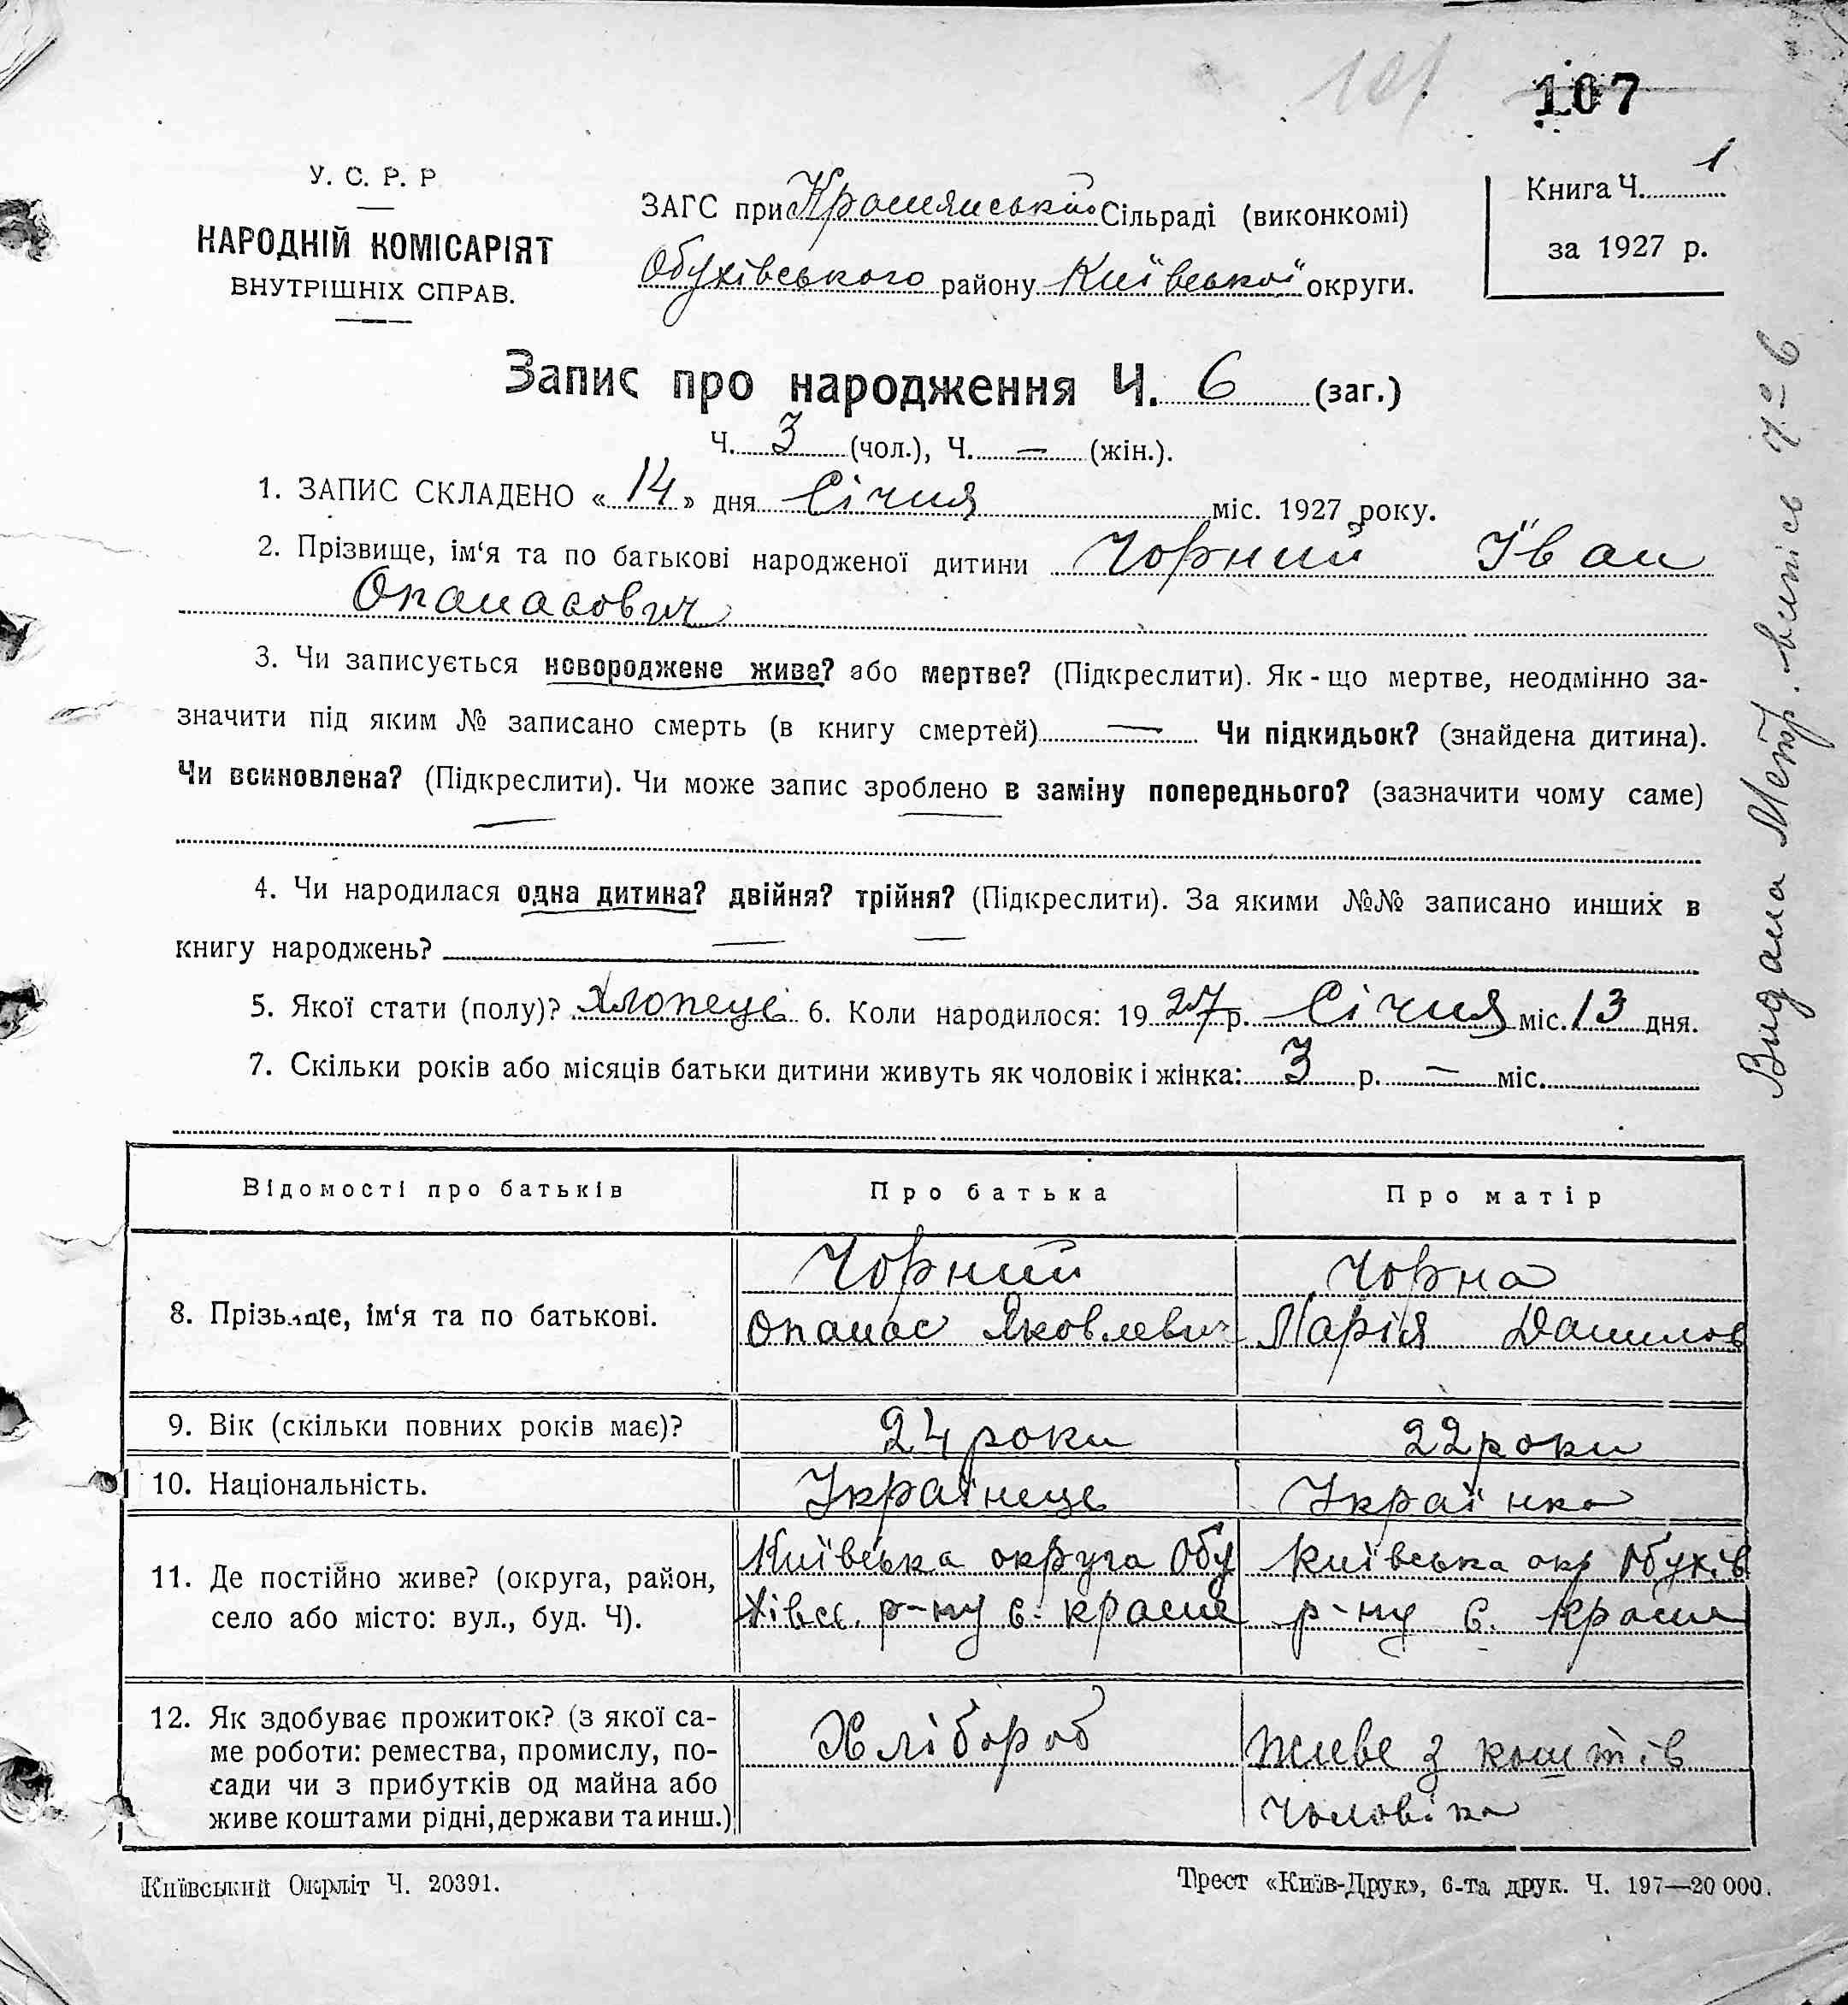 107
У. С. Р. Р
НАРОДНІЙ КОМІСАРІЯТ
ВНУТРІШНІХ СПРАВ.
ЗАГС при Краснянській Сільраді (виконкомі)
Обухівського району Київської округи.
Книга Ч. 1
за 1927 р.
Запис про народження Ч. 6 (заг.)
Ч. 3 (чол.), Ч. — (жін.).
1. ЗАПИС СКЛАДЕНО « 14 » дня Січня міс. 1927 року.
2. Прізвище, ім‘я та по батькові народженої дитини Чорний Іван
Опанасович
3. Чи записується новороджене живе? або мертве? (Підкреслити). Як - що мертве, неодмінно за-
значити під яким № записано смерть (в книгу смертей) — Чи підкидьок? (знайдена дитина).
Чи всиновлена? (Підкреслити). Чи може запис зроблено в заміну попереднього? (зазначити чому саме)
4. Чи народилася одна дитина? двійня? трійня? (Підкреслити). За якими №№ записано инших в
книгу народжень? — —
5. Якої стати (полу)? Хлопець 6. Коли народилося: 1927 р. Січня міс. 13 дня.
7. Скільки років або місяців батьки дитини живуть як чоловік і жінка: 3 р. — міс.
Видана Метр. випись Ч. 6
Відомості про батьків Про батька Про матір
8. Прізвище, ім‘я та по батькові.
Чорний
Опанас Яковлевич
Чорна
Марія Данилов
9. Вік (скільки повних років має)? 24 роки 22 роки
10. Національність. Українець Українка
11. Де постійно живе? (округа, район,
село або місто: вул., буд. Ч).
Київська округа Обу
хівсь. р-ну с. Красне
Київська окр Обухів
р-ну с. Красне
12. Як здобуває прожиток? (з якої са-
ме роботи: ремества, промислу, по-
сади чи з прибутків од майна або
живе коштами рідні, держави та инш.)
Хлібороб
Живе з коштів
чоловіка
Київський Окрліт Ч. 20391.
Трест «Київ-Друк», 6-та друк. Ч. 197—20 000.